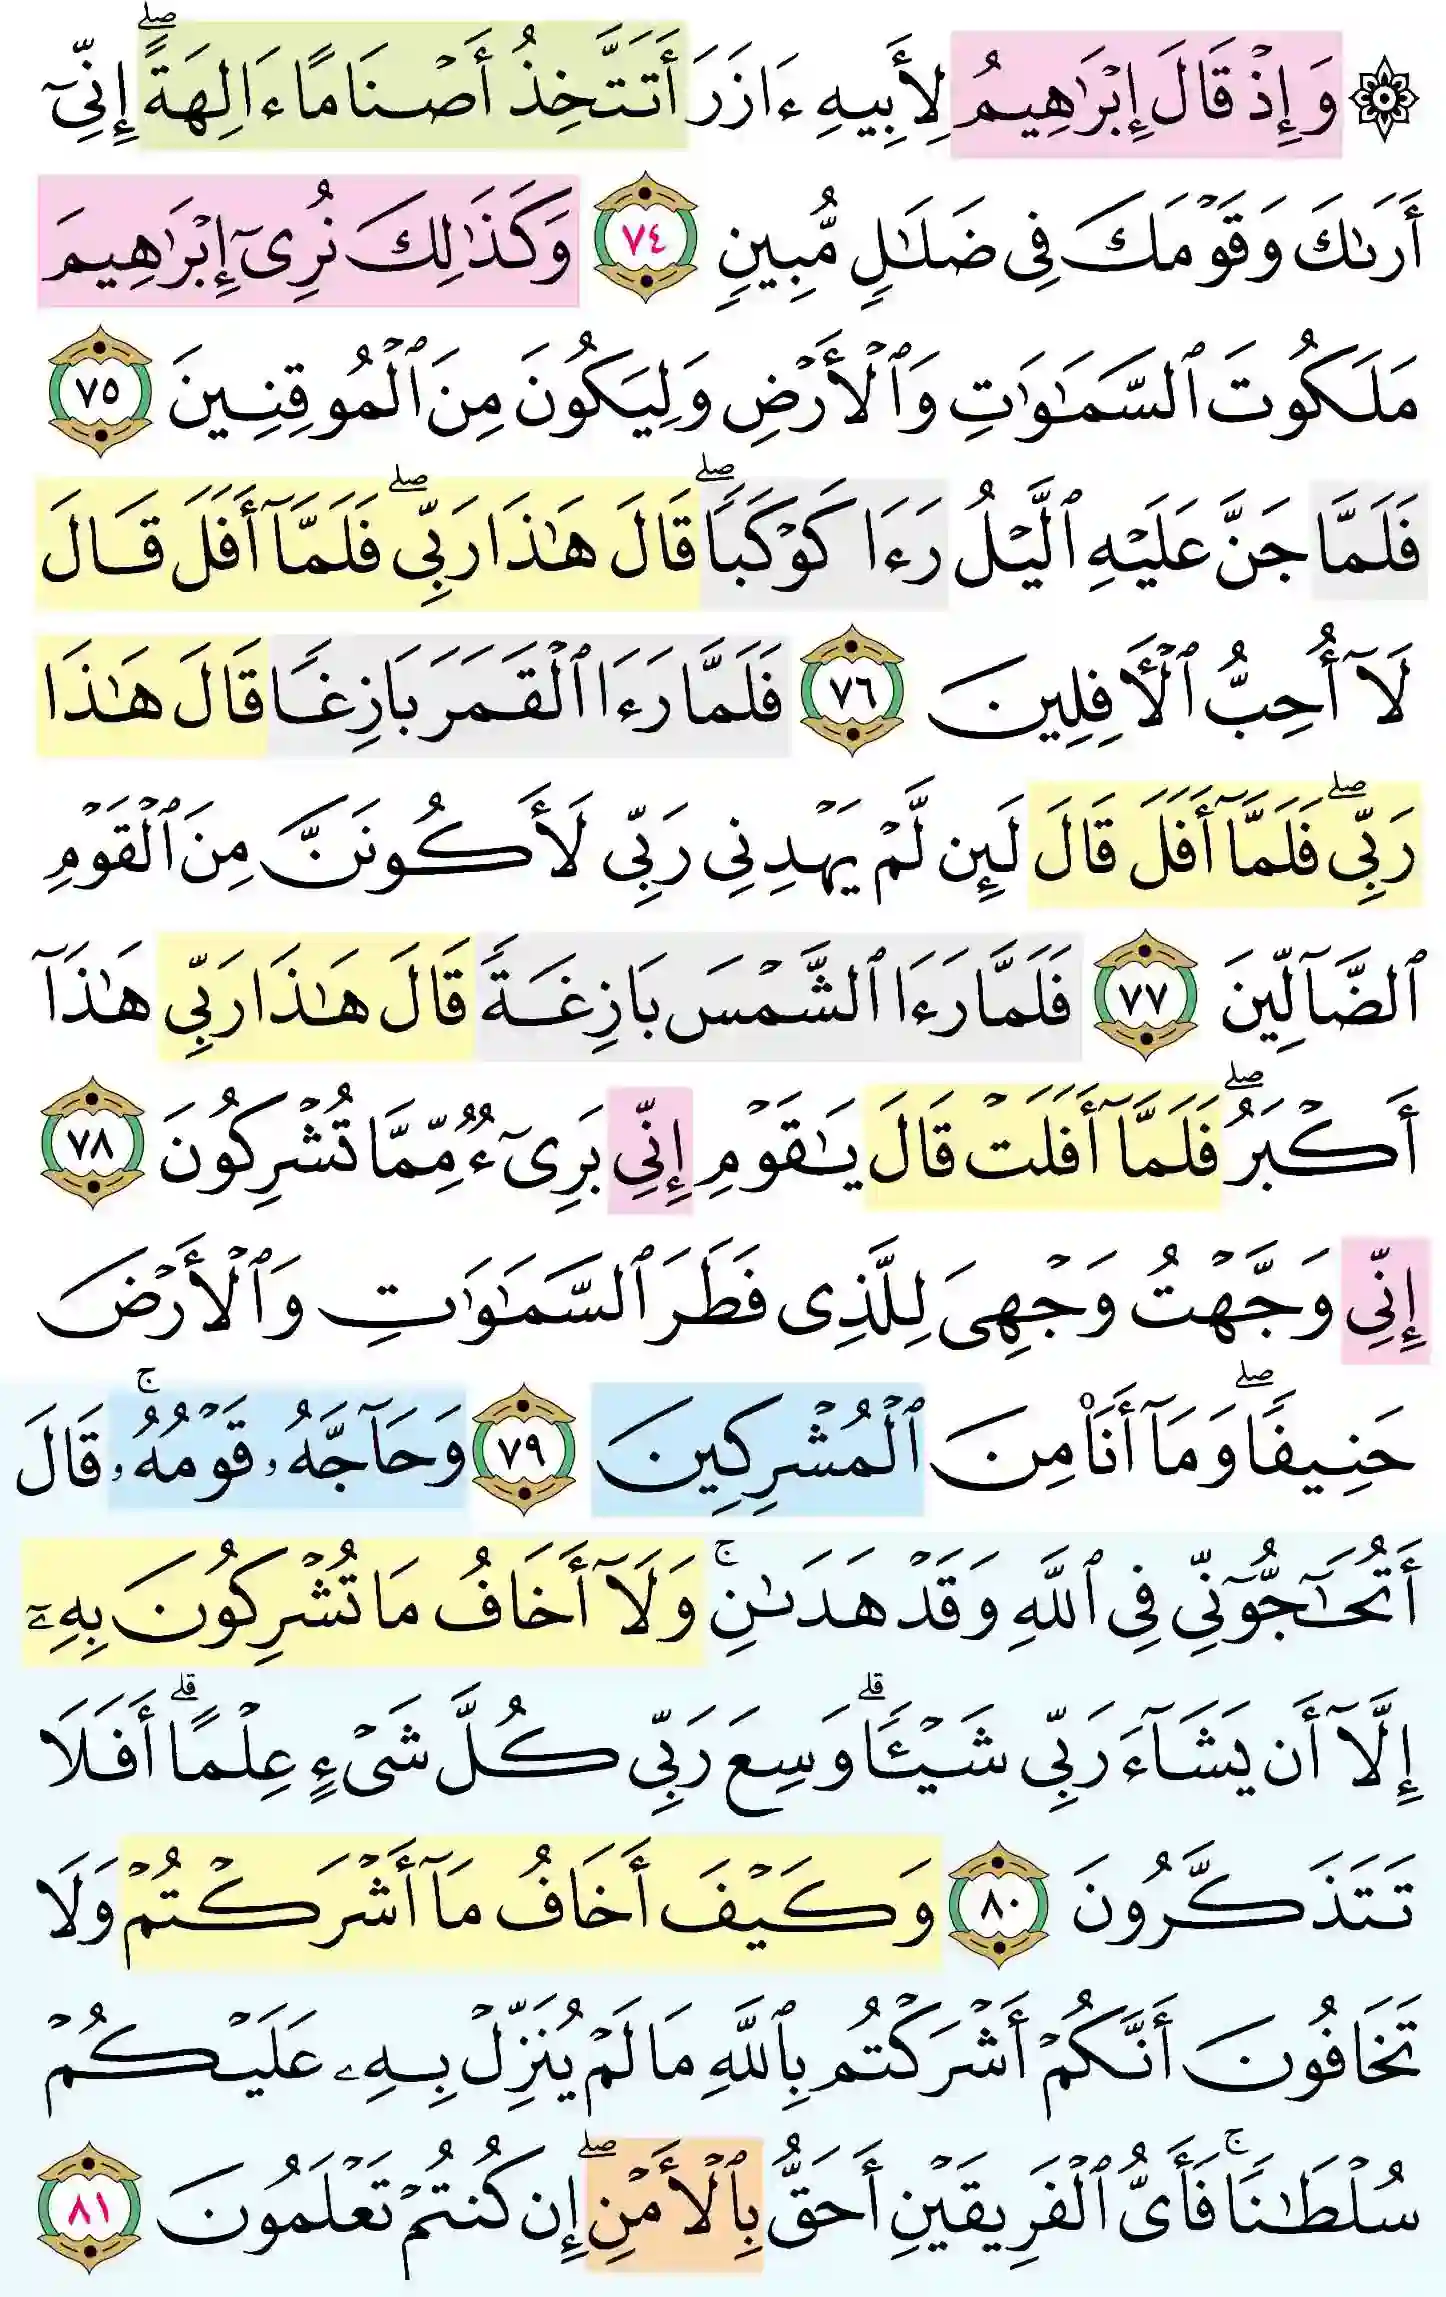 ۞ وَإِذۡ قَالَ إِبۡرَٰهِيمُ لِأَبِيهِ ءَازَرَ أَتَتَّخِذُ أَصۡنَامًا ءَالِهَةًۖ إِنِّيٓ
أَرَىٰكَ وَقَوۡمَكَ فِي ضَلَٰلٖ مُّبِينٖ ٧٤ وَكَذَٰلِكَ نُرِيٓ إِبۡرَٰهِيمَ
مَلَكُوتَ ٱلسَّمَٰوَٰتِ وَٱلۡأَرۡضِ وَلِيَكُونَ مِنَ ٱلۡمُوقِنِينَ ٧٥
فَلَمَّا جَنَّ عَلَيۡهِ ٱلَّيۡلُ رَءَا كَوۡكَبٗاۖ قَالَ هَٰذَا رَبِّيۖ فَلَمَّآ أَفَلَ قَالَ
لَآ أُحِبُّ ٱلۡأٓفِلِينَ ٧٦ فَلَمَّا رَءَا ٱلۡقَمَرَ بَازِغٗا قَالَ هَٰذَا
رَبِّيۖ فَلَمَّآ أَفَلَ قَالَ لَئِن لَّمۡ يَهۡدِنِي رَبِّي لَأَكُونَنَّ مِنَ ٱلۡقَوۡمِ
ٱلضَّآلِّينَ ٧٧ فَلَمَّا رَءَا ٱلشَّمۡسَ بَازِغَةٗ قَالَ هَٰذَا رَبِّي هَٰذَآ
أَكۡبَرُۖ فَلَمَّآ أَفَلَتۡ قَالَ يَٰقَوۡمِ إِنِّي بَرِيٓءٞ مِّمَّا تُشۡرِكُونَ ٧٨
إِنِّي وَجَّهۡتُ وَجۡهِيَ لِلَّذِي فَطَرَ ٱلسَّمَٰوَٰتِ وَٱلۡأَرۡضَ
حَنِيفٗاۖ وَمَآ أَنَا۠ مِنَ ٱلۡمُشۡرِكِينَ ٧٩ وَحَآجَّهُۥ قَوۡمُهُۥۚ قَالَ
أَتُحَٰٓجُّوٓنِّي فِي ٱللَّهِ وَقَدۡ هَدَىٰنِۚ وَلَآ أَخَافُ مَا تُشۡرِكُونَ بِهِۦٓ
إِلَّآ أَن يَشَآءَ رَبِّي شَيۡـٔٗاۗ وَسِعَ رَبِّي كُلَّ شَيۡءٍ عِلۡمًاۗ أَفَلَا
تَتَذَكَّرُونَ ٨٠ وَكَيۡفَ أَخَافُ مَآ أَشۡرَكۡتُمۡ وَلَا
تَخَافُونَ أَنَّكُمۡ أَشۡرَكۡتُم بِٱللَّهِ مَا لَمۡ يُنَزِّلۡ بِهِۦ عَلَيۡكُمۡ
سُلۡطَٰنٗاۚ فَأَيُّ ٱلۡفَرِيقَيۡنِ أَحَقُّ بِٱلۡأَمۡنِۖ إِن كُنتُمۡ تَعۡلَمُونَ ٨١